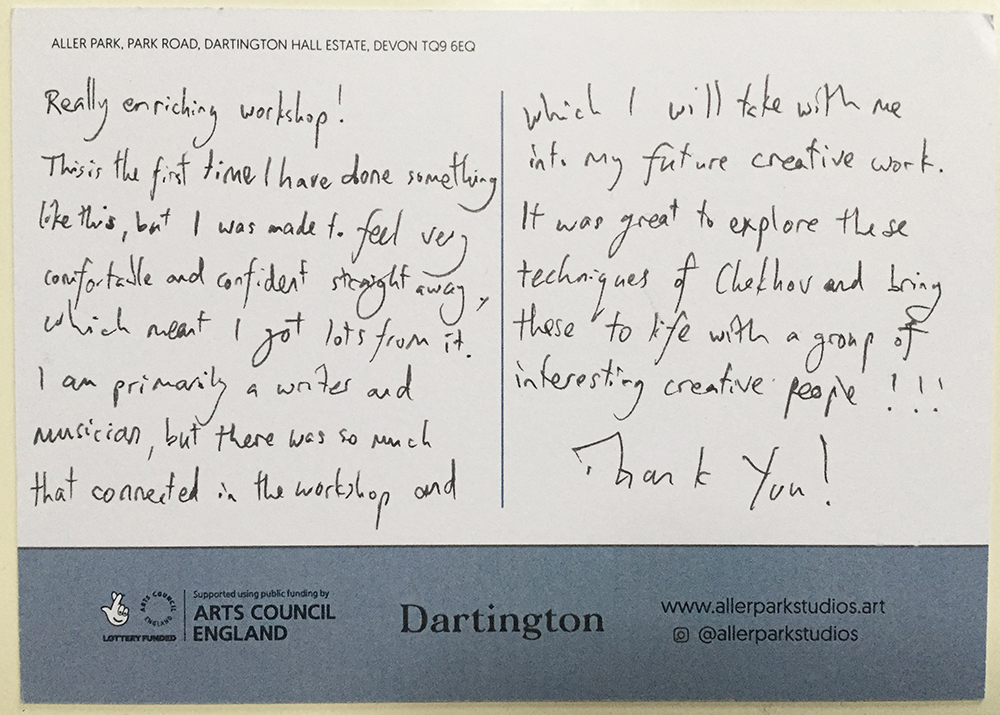 ALLER PARK, PARK ROAD, DARTINGTON HALL ESTATE, DEVON TQ9 6EQ
Really enriching workshop!
This is the first time I have done something
like this, but I was made to feel very
comfortable and confident straight away,
which meant I got lots from it.
I am primarily a writer and
musician, but there was so much
that connected in the workshop and
which I will take with me
into my future creative work.
It was great to explore these
techniques of Chekhov and bring
these to life with a group of
interesting creative people !!!
Thank You!
ARTS COUNCIL ENGLAND
LOTTERY FUNDED
Supported using public funding by
ARTS COUNCIL
ENGLAND
Dartington
www.allerparkstudios.art
@allerparkstudios